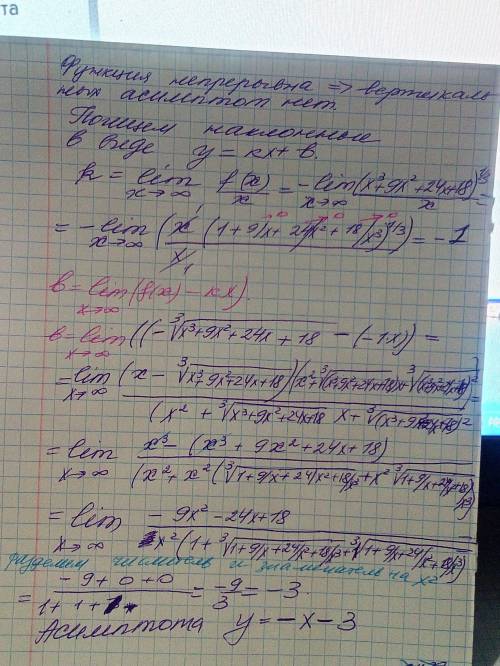 та
Функция непрерывна => вертикаль
ных асимптот нет.
Поищем наклонные
в виде y = kx + b.
k = lim x→∞ f(x)/x = -lim x→∞ (x³+9x²+24x+18)^1/3 / x =
= -lim x→∞ (x (1+9/x+24/x²+18/x³)^1/3 / x) = -1
b = lim x→∞ (f(x) - kx).
b = lim x→∞ ((-∛(x³+9x²+24x+18) - (-1x)) =
= lim x→∞ (x - ∛(x³+9x²+24x+18))(x²+∛(x³+9x²+24x+18)x+∛(x³+9x²+24x+18)²) / (x² + ∛(x³+9x²+24x+18) x + ∛(x³+9x²+24x+18)²) =
= lim x→∞ x³ - (x³ + 9x² + 24x + 18) / (x² + x²(∛(1+9/x+24/x²+18/x³) + x² ∛(1+9/x+24/x²+18/x³)²)
= lim x→∞ -9x² - 24x + 18 / x²(1 + ∛(1+9/x+24/x²+18/x³) + ∛(1+9/x+24/x²+18/x³)²) =
разделим числитель и знаменатель на x²
= -9 + 0 + 0 / 1 + 1 + 1 = -9/3 = -3.
Асимптота y = -x - 3